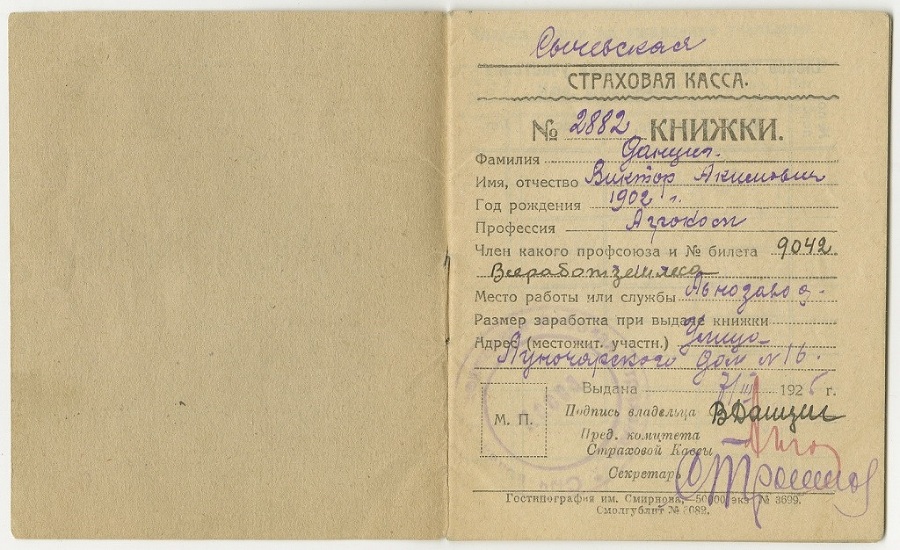 Сычевская
СТРАХОВАЯ КАССА.
№ 2882 КНИЖКИ.
Фамилия Данциг.
Имя, отчество Виктор Акимович
Год рождения 1902 г.
Профессия
Член какого профсоюза и № билета 9042
Всеработземлеса
Место работы или службы Льнозавод.
Размер заработка при выдаче книжки
Адрес (местожит. участн.) Улица
Луночарского дом № 16.
Выдана 192 г.
М. П.
Подпись владельца ВДанциг
Пред. комитета
Страховой Кассы
Секретарь
Гостипография им. Смирнова,—50000 экз № 3699.
Смолгублит №